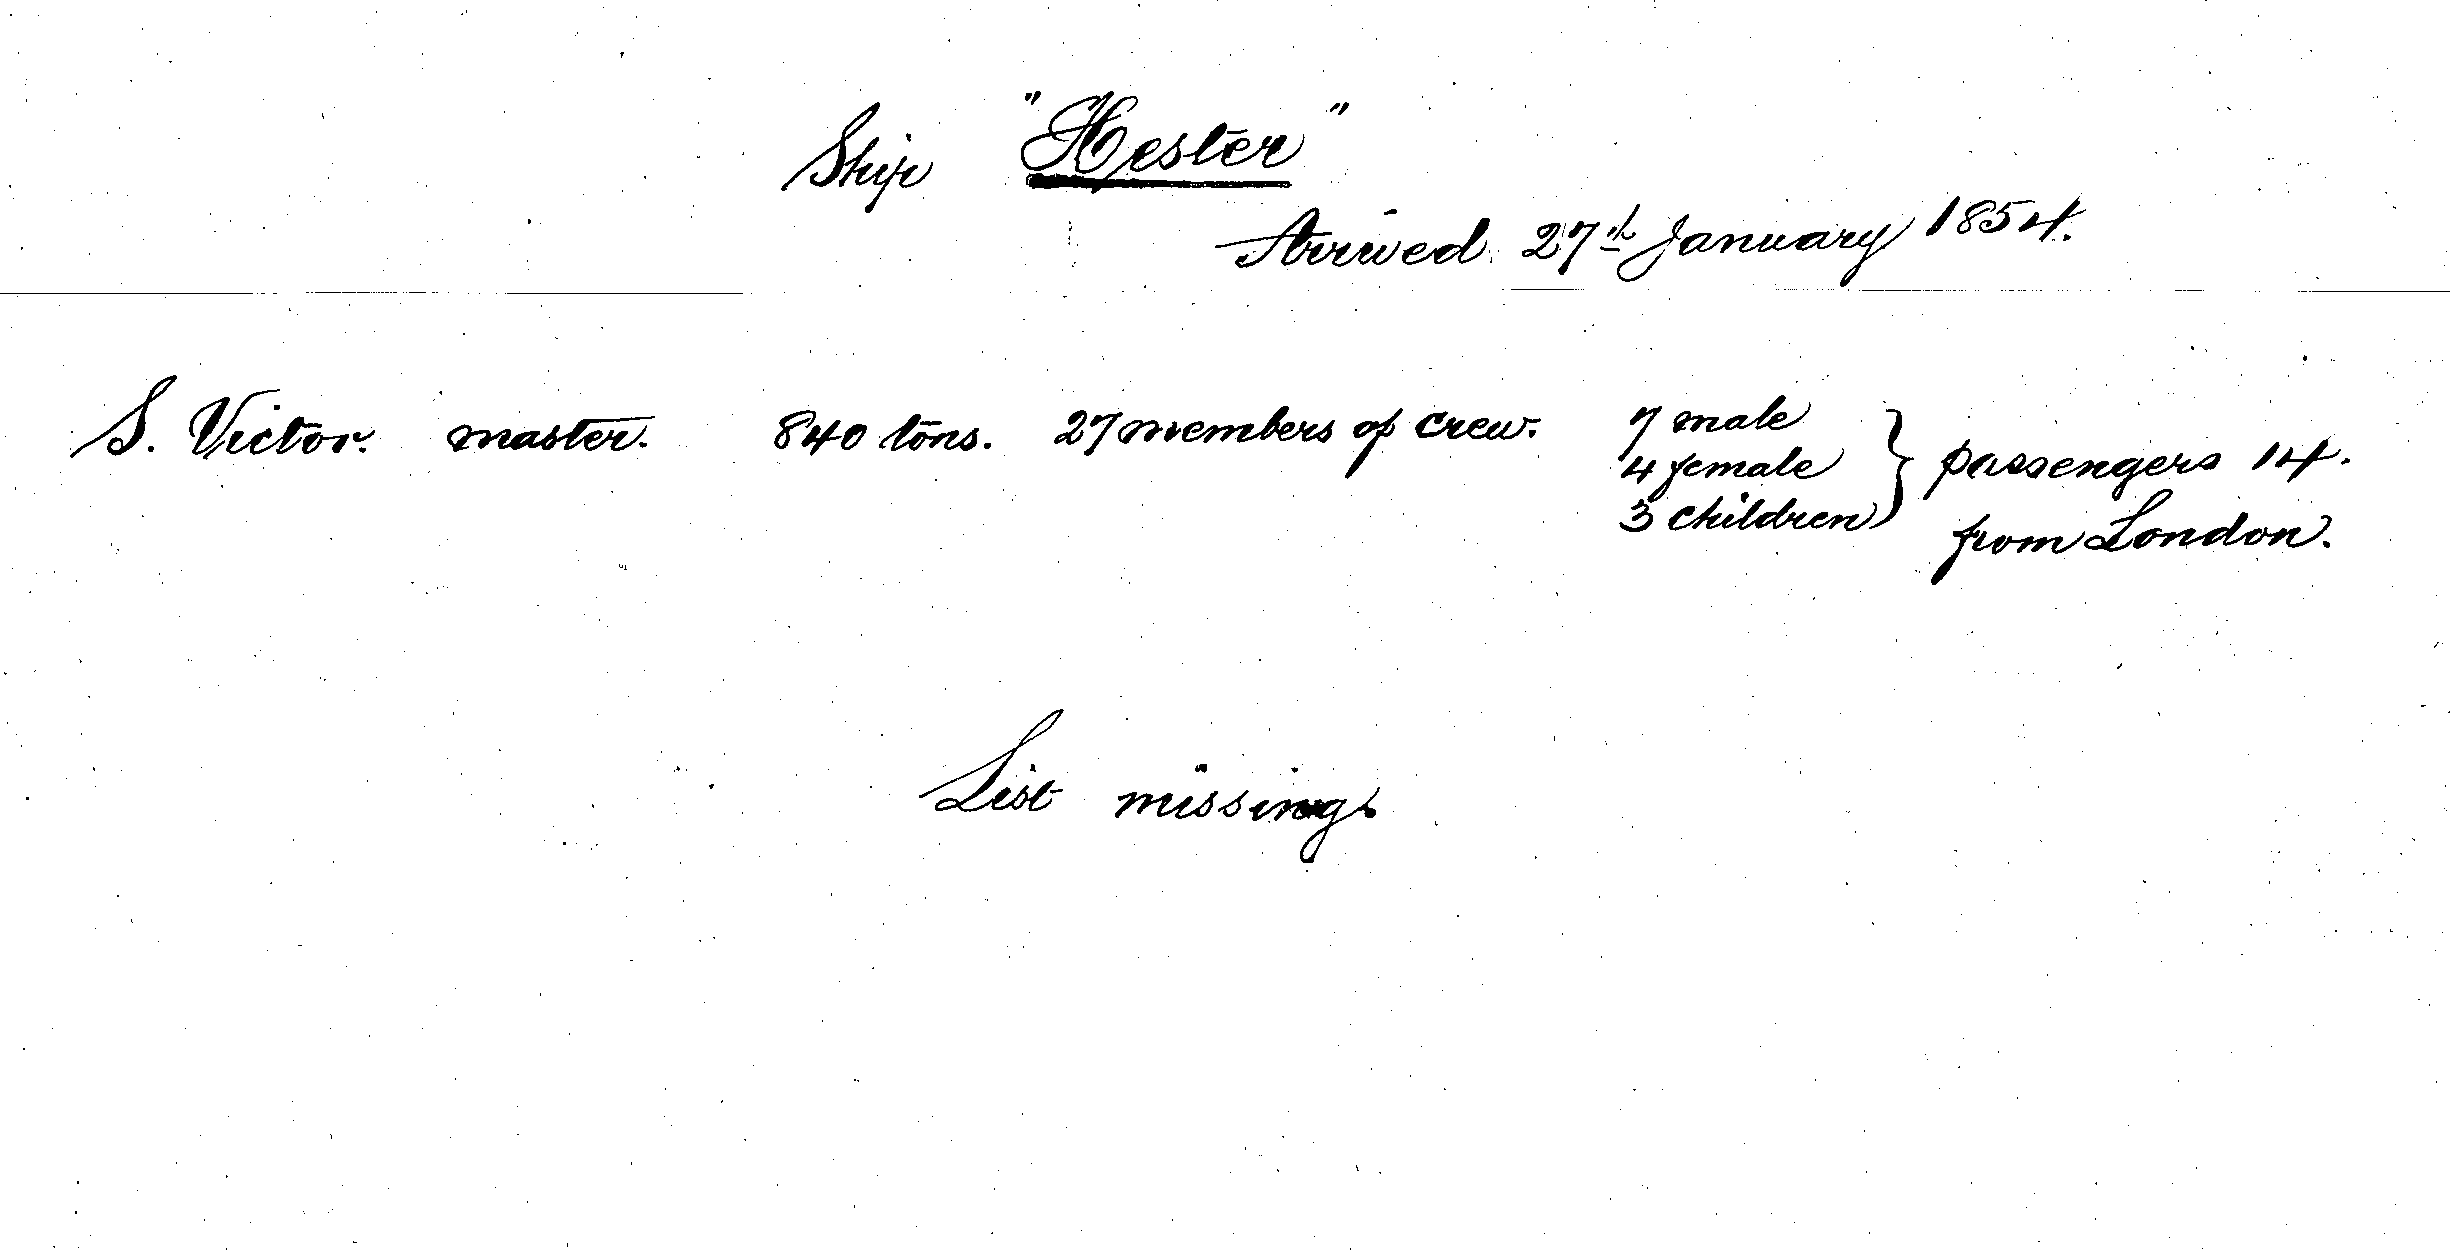 Ship "Hester"
Arrived 27th January 1854.
S. Victor. master. 840 tons. 27 members of crew. 7 male
4 female } passengers 14.
3 children
from London.
List missing.